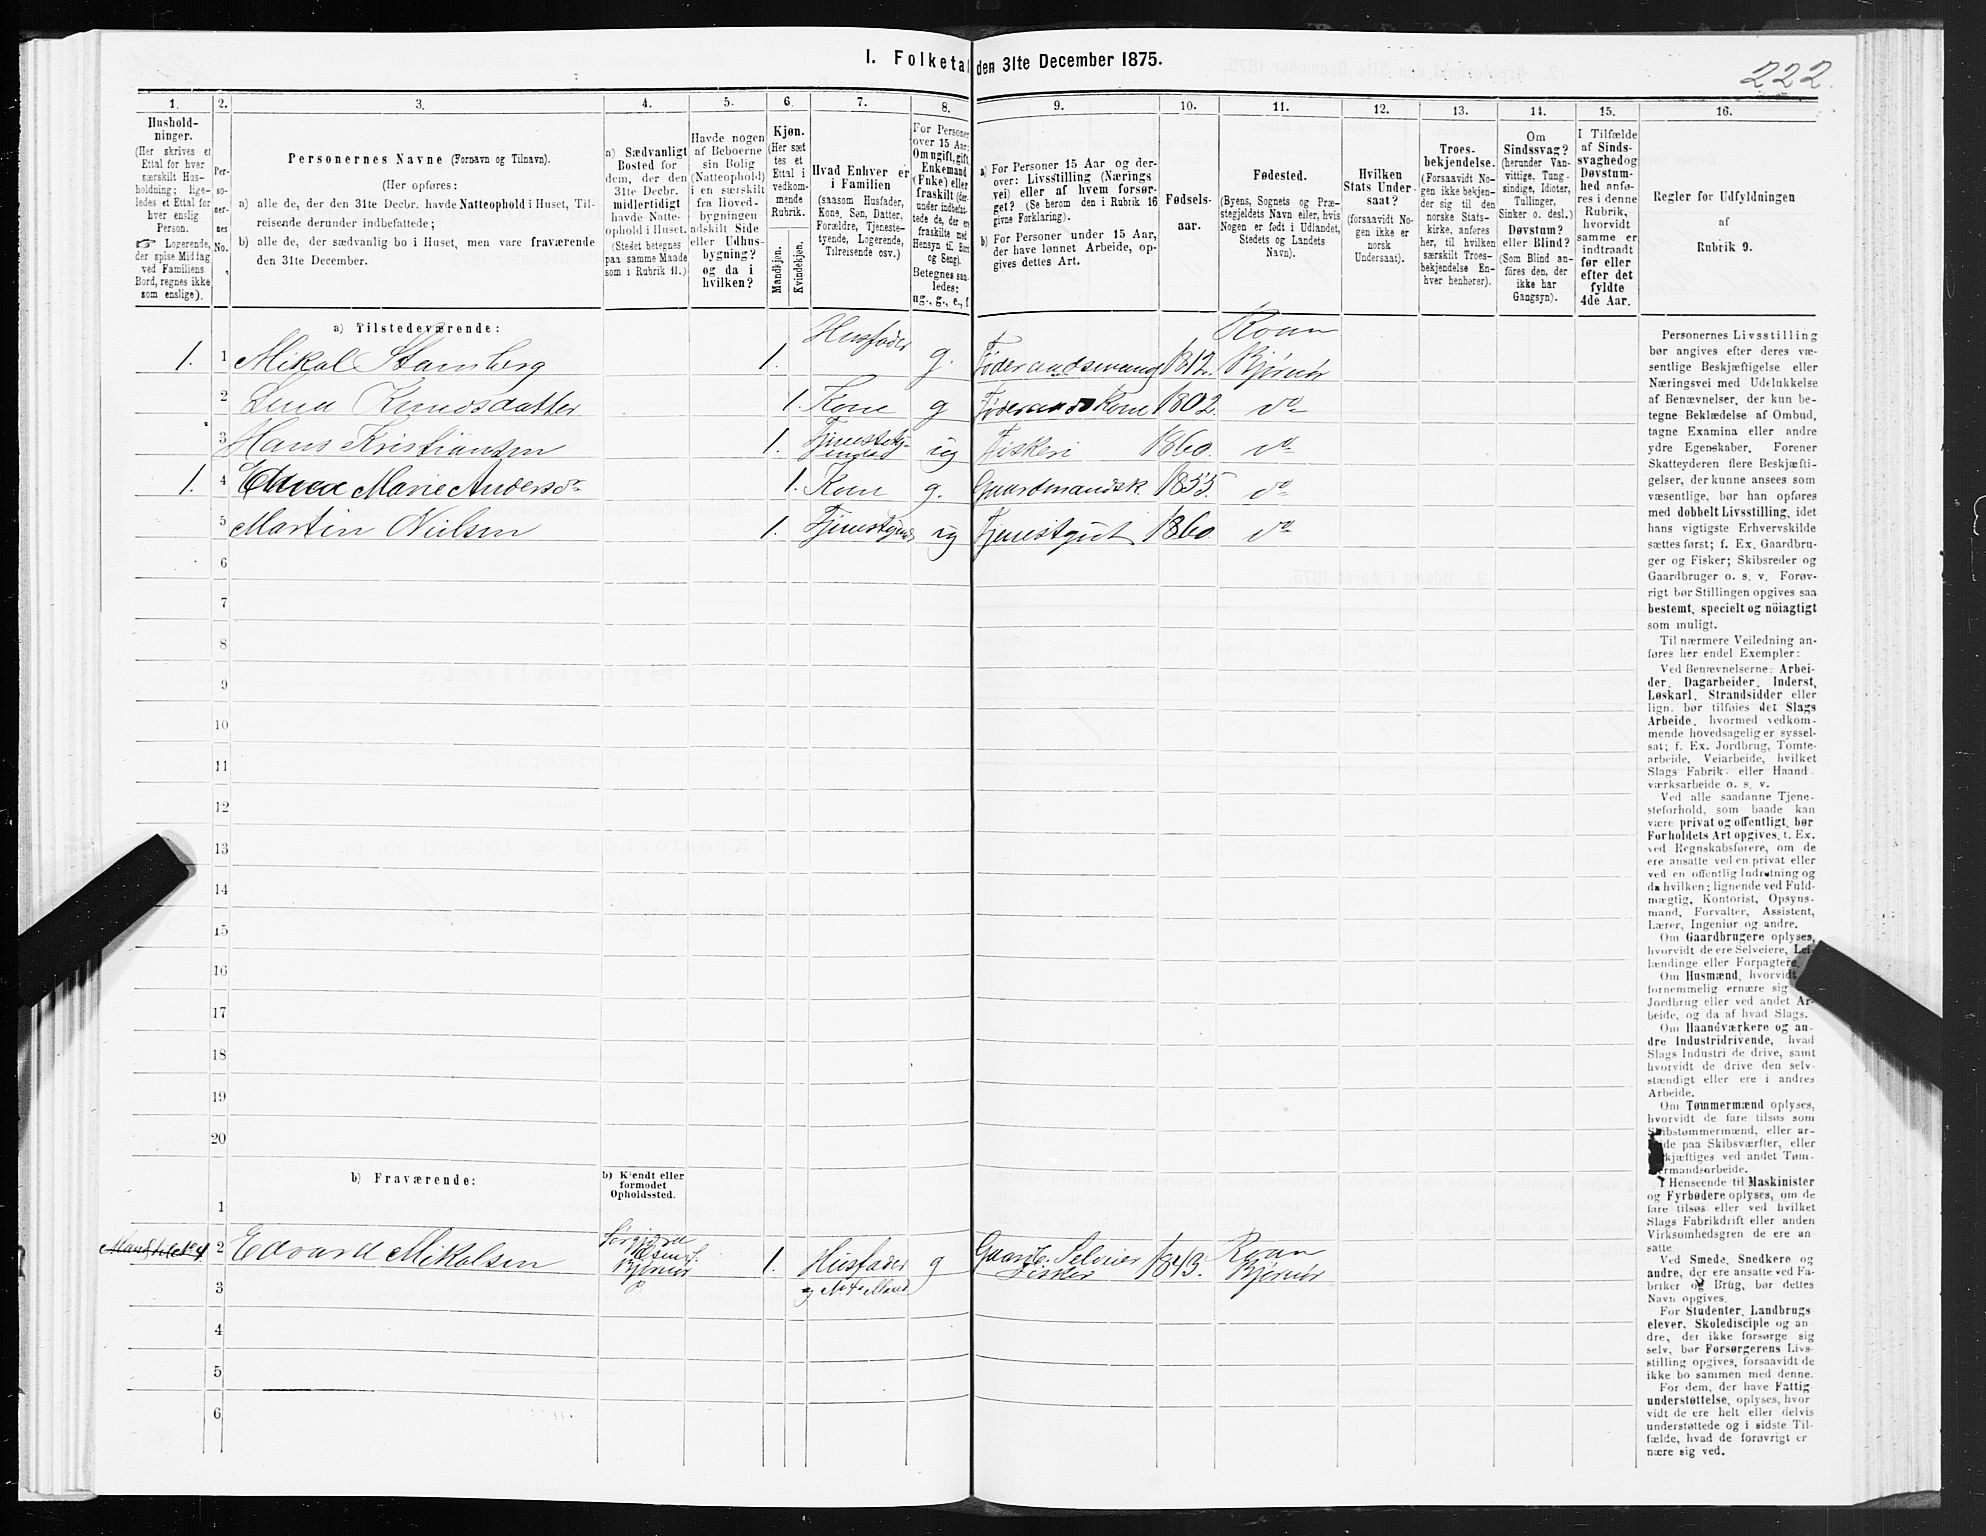 I. Folketal den 31te December 1875.
222.
1. 2. 3. 4. 5. 6. 7. 8. 9. 10. 11. 12. 13. 14. 15. 16.
Hushold-
ninger.
(Her skrives et
Ettal for hver
særskilt Hus-
holdning; lige-
ledes et Ettal for
hver enslig
Person.
☞ Logerende,
der spise Middag
ved Familiens
Bord, regnes ikke
som enslige).
Per-
so-
ner-
nes
No.
Personernes Navne (Fornavn og Tilnavn).
(Her opføres:
a) alle de, der den 31te Decbr. havde Natteophold i Huset, Til-
reisende derunder indbefattede;
b) alle de, der sædvanlig bo i Huset, men vare fraværende
den 31te December.
a) Sædvanligt
Bosted for
dem, der den
31te Decbr.
midlertidigt
havde Natte-
ophold i Huset.
(Stedet betegnes
paa samme Maade
som i Rubrik 11.)
Havde nogen
af Beboerne
sin Bolig
(Natteophold)
i en særskilt
fra Hoved-
bygningen
adskilt Side
eller Udhus-
bygning?
og da i
hvilken?
Kjøn.
(Her sæt
tes et
Ettal i
vedkom-
mende
Rubrik.
Mandkjøn.
Kvindekjøn.
Hvad Enhver er
i Familien
(saasom Husfader,
Kone, Søn, Datter,
Forældre, Tjeneste-
tyende, Logerende,
Tilreisende osv.)
For Personer
over 15 Aar:
Om ugift, gift,
Enkemand
(Enke) eller
fraskilt (der-
under indbefat-
tede de, der ere
fraskilte med
Hensyn til Bord
og Seng).
Betegnes saa-
ledes:
ug., g., e., f.
a) For Personer 15 Aar og der-
over: Livsstilling (Nærings
vei) eller af hvem forsør-
get? (Se herom den i Rubrik 16
givne Forklaring).
b) For Personer under 15 Aar,
der have lønnet Arbeide, op-
gives dettes Art.
Fødsels-
aar.
Fødested.
(Byens, Sognets og Præ-
stegjeldets Navn eller, hvis
Nogen er født i Udlandet,
Stedets og Landets
Navn).
Hvilken
Stats Under-
saat?
(forsaavidt No-
gen ikke er
norsk
Undersaat).
Troes-
bekjendelse.
(Forsaavidt No-
gen ikke bekjen-
der sig til den
norske Stats-
kirke, anføres
her, til hvilken
særskilt Troes-
bekjendelse En-
hver henhører).
Om
Sindssvag?
(herunder Van-
vittige, Tung-
sindige, Idioter,
Tullinger,
Sinker o. desl.)
Døvstum?
eller Blind?
(Som Blind an-
føres den, der
ikke har
Gangsyn).
I Tilfælde
af Sinds-
svaghed og
Døvstum-
hed anfø-
res i denne
Rubrik,
hvorvidt
samme er
indtraadt
før eller
efter det
fyldte
4de Aar.
Regler for Udfyldningen
af
Rubrik 9.
a) Tilstedeværende:
1. 1 Mikal Stamberg 1. Husfader g. Føderaadsmand 1812. Roan Bjørnør
2 Lina Knudsdatter 1. Kone g Føderaads Kone 1802. do
3 Hans Kristiansen 1. ug Fiskeri 1860. do
1. 4 Marie Andersd. 1. Kone g. Gaardmandsk. 1855. do
5 Martin Nielsen 1. ug Tjenestgut 1860. do
6
7
8
9
10
11
12
13
14
15
16
17
18
19
20
b) Fraværende:
b) Kjendt eller
formodet
Opholdssted.
1
2 Edvard Mikalsen Bjørnør 1. Husfader og No 4s Mand g Gaardb. Selveier Fisker 1843. Roan Bjørnør
3
4
5
6
Personernes Livsstilling
bør angives efter deres væ-
sentlige Beskjæftigelse eller
Næringsvei med Udelukkelse
af Benævnelser, der kun be-
tegne Beklædelse af Ombud,
tagne Examina eller andre
ydre Egenskaber. Forener
Skatteyderen flere Beskjæfti-
gelser, der kunne ansees som
væsentlige, bør han opføres
med dobbelt Livsstilling, idet
hans vigtigste Erhvervskilde
sættes først; f. Ex. Gaardbru-
ger og Fisker; Skibsreder og
Gaardbruger o. s. v. Forøv-
rigt bør Stillingen opgives saa
bestemt, specielt og nöiagtigt
som muligt.
Til nærmere Veiledning an-
føres her endel Exempler:
Ved Benævnelserne: Arbei-
der, Dagarbeider, Inderst,
Løskarl, Strandsidder eller
lign. bør tilføies det Slags
Arbeide, hvormed vedkom-
mende hovedsagelig er syssel-
sat; f. Ex. Jordbrug, Tomte-
arbeide, Veiarbeide, hvilket
Slags Fabrik- eller Haand
værksarbeide o. s. v.
Ved alle saadanne Tjene-
steforhold, som baade kan
være privat og offentligt, bør
Forholdets Art opgives, t. Ex.
ved Regnskabsførere, om de
ere ansatte ved en privat eller
ved en offentlig Indretning og
da hvilken; lignende ved Fuld-
mægtig, Kontorist, Opsyns-
mand, Forvalter, Assistent,
Lærer, Ingeniør og andre.
Om Gaardbrugere oplyses,
hvorvidt de ere Selveiere, Lei-
lændinge eller Forpagtere.
Om Husmænd, hvorvidt
fornemmelig ernære sig
Jordbrug eller ved andet Ar-
beide, og da af hvad Slags.
Om Haandværkere og an-
dre Industridrivende, hvad
Slags Industri de drive, samt
hvorvidt de drive den selv-
stændigt eller ere i andres
Arbeide.
Om Tømmermænd oplyses,
hvorvidt de fare tilsøs som
Skibstømmermænd, eller ar-
beide paa Skibsværfter, eller
beskjæftiges ved andet Tøm-
mermandsarbeide.
I Henseende til Maskinister
og Fyrbødere oplyses, om de
fare tilsøs eller ved hvilket
Slags Fabrikdrift eller anden
Virksomhedsgren de ere an-
satte
Ved Smede, Snedkere og
andre, der ere ansatte ved Fa-
briker og Brug, bør dettes
Navn opgives.
For Studenter, Landbrugs
elever, Skoledisciple og an-
dre, der ikke forsørge sig
selv, bør Forsørgerens Livs-
stilling opgives, forsaavidt de
ikke bo sammen med denne.
For dem, der have Fattig-
understøttelse, oplyses, hvor
vidt de ere helt eller delvis
understøttede og i sidste Til-
fælde, hvad de forøvrigt er
nære sig ved.